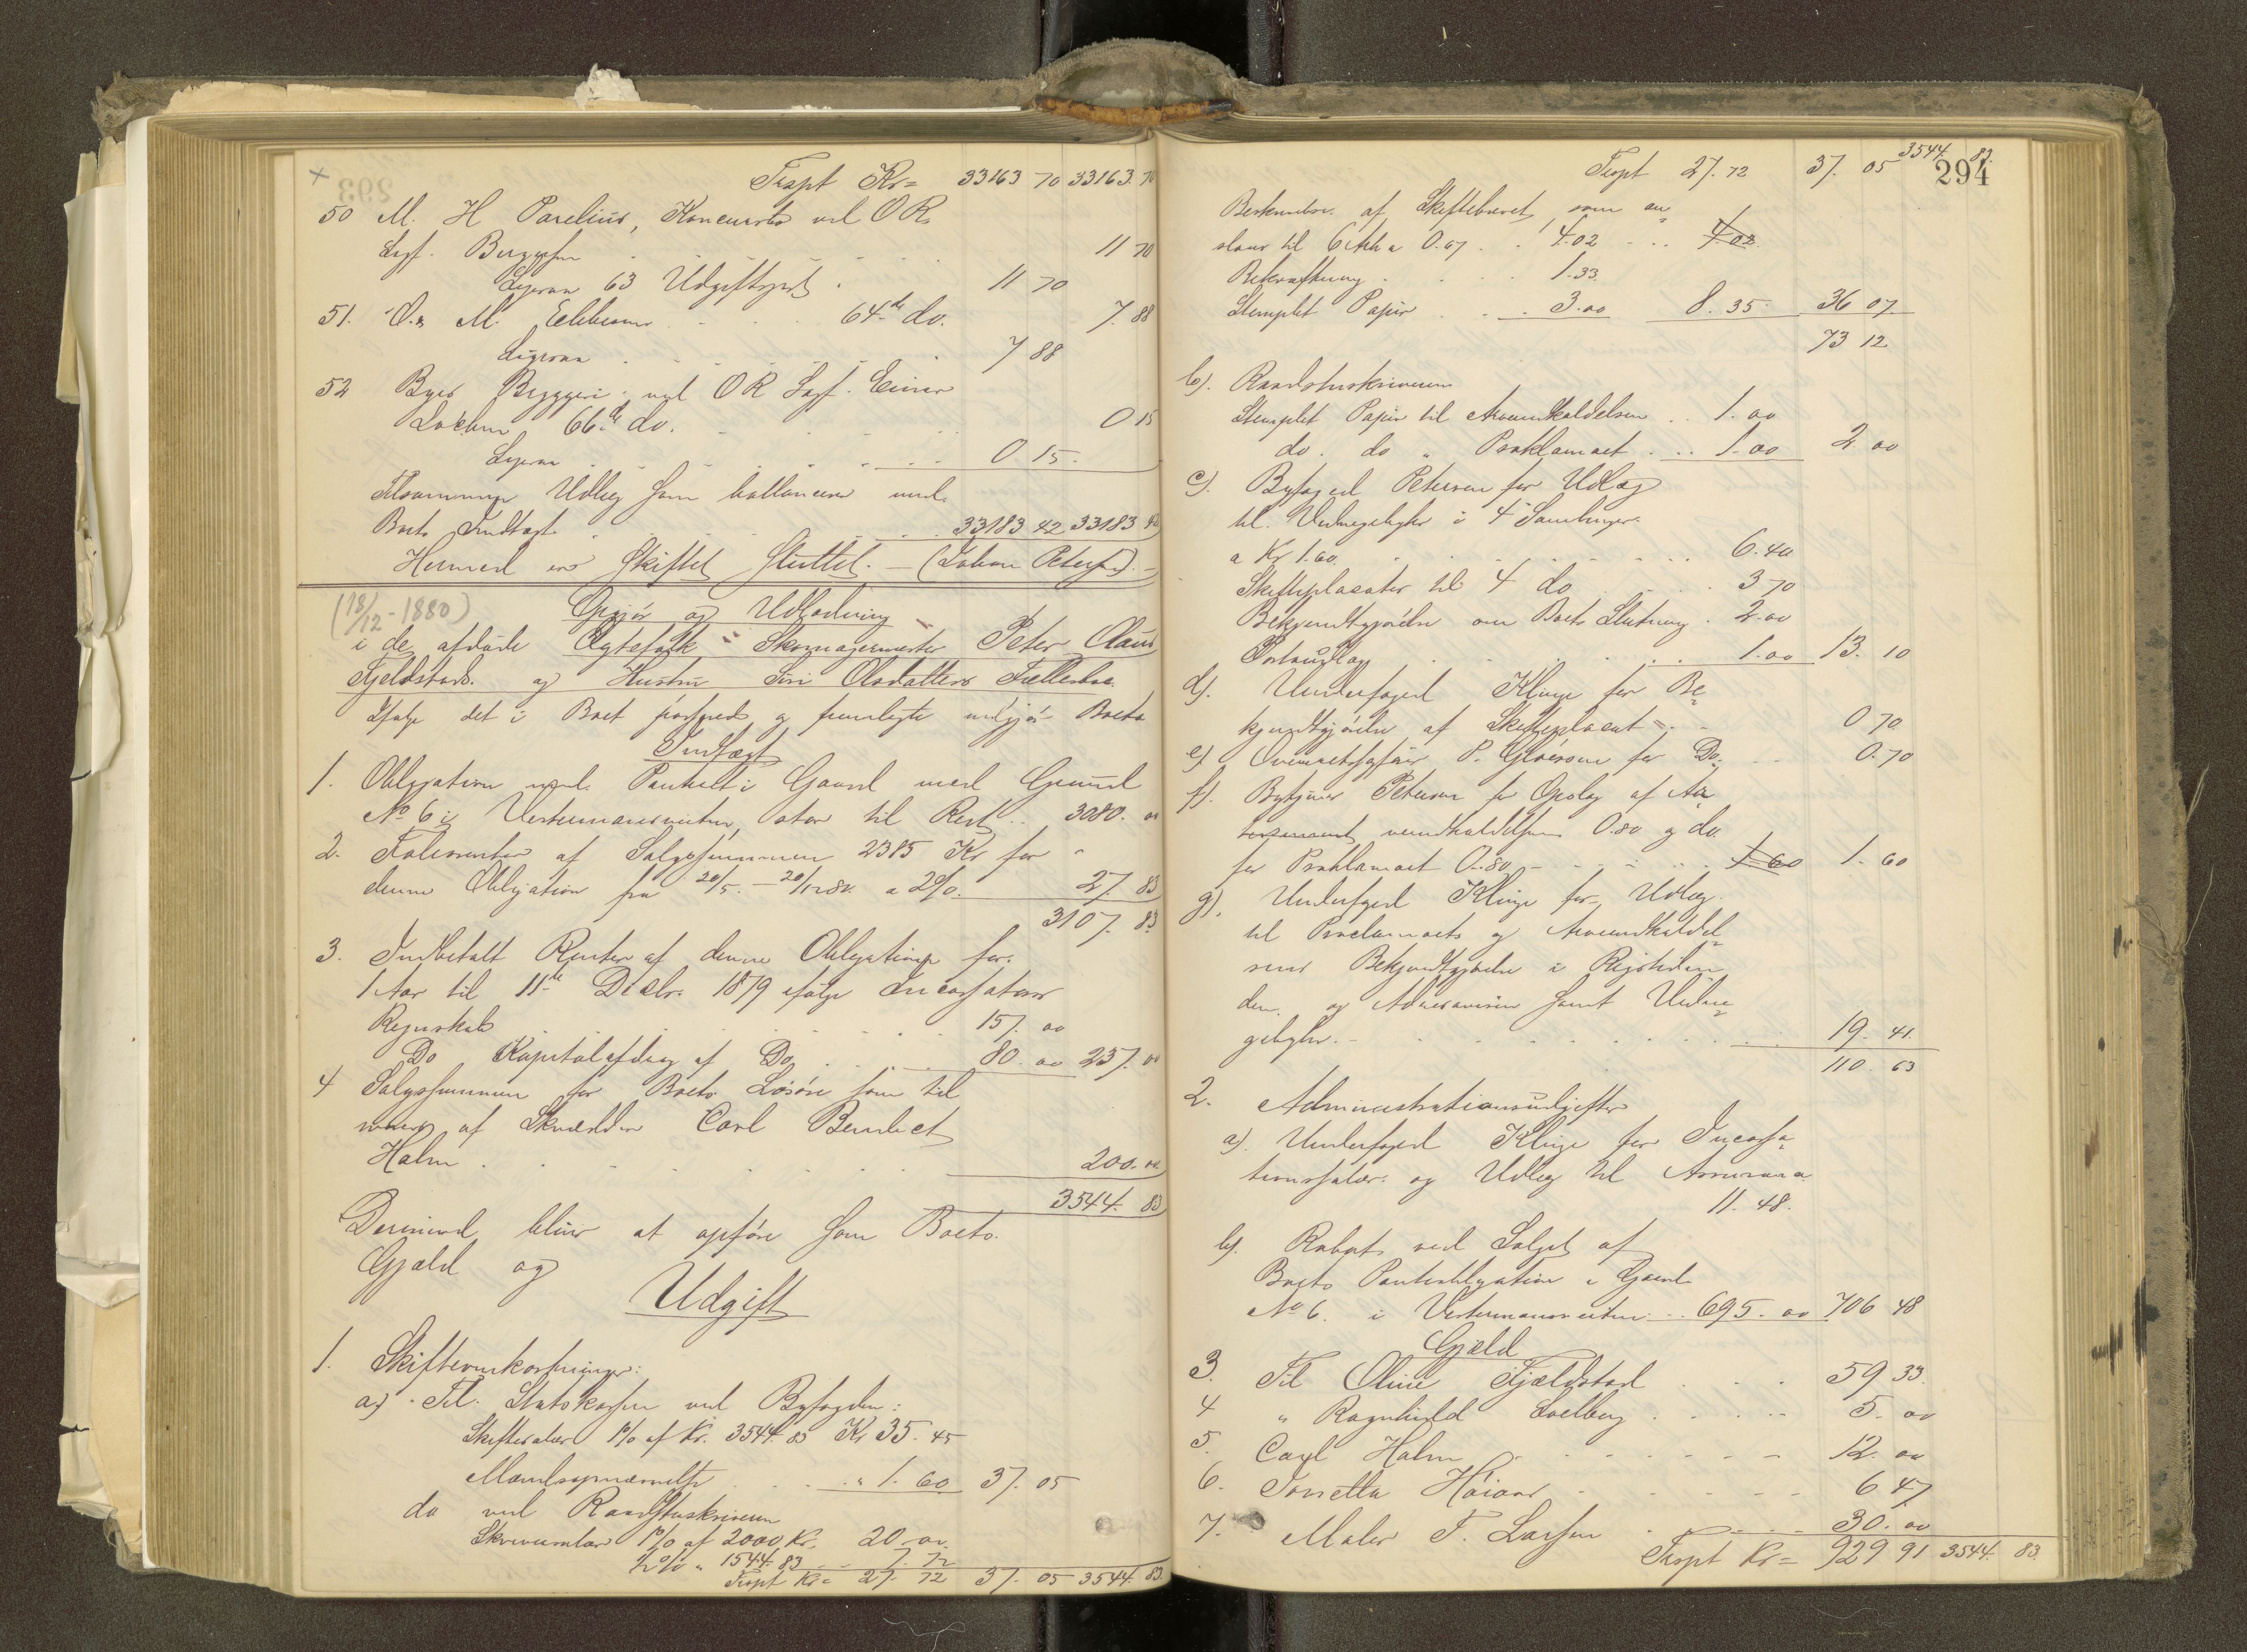 Trspt Kr= 33163 70 33163. 70
50 M. H Parelius, Koncursbo ved O R
Sagf. Bugge
Ligesaa 63 Udgiftspost 11 70
11 70
51. O. M. 64de do. 7. 88
Ligesaa 7 88
52 Byes Bryggeri ved O R Sagf. Einar
66de do. 0 15
Ligesaa 0 15.
Tilsammen Udlæg som ballancerer med
Boets Indtægt 33183 42 33183 42
Hermed er Skiftet Sluttet. — (Johan Petersen). —
(18/12-1880) Opgjör og Udlodning
i de afdøde Ægtefolk Skomagermester Peter Claus
Fjeldstads og Hustru Siri Olsdatters Fællesbo.
Ifølge det i Boet passerede og fremlagte udgjør Boets
Indtægt
1. Obligation med Panteret i Gaard med Grund
No 6 i Vestermannsveiten, stor til Rest .. 3080. 00
2. Falsrenter af Salgssummen 2385 Kr for
denne Obligation fra 20/5. — 20/12 80. a 2%. 27. 83
3107. 83
3. Indbetalt Renter af denne Obligation for
1 Aar til 11te Decbr. 1879 ifølge Incassators
Regnskab 157. 00
Do Kapitalafdrag af Do 80. 00 237. 00
4 Salgssummen for Boets Løsøre som til
af Skrædder Carl Benedict
Halm 200. 00
3544. 83
Derimod bliver at opföre som Boets
Gjæld og
Udgift
1. Skifteomkostninger:
a) Til Statskassen ved Byfogden:
Skiftesalær 1% af Kr. 3544. 83 Kr 35. 45
" 1. 60 37. 05
do ved Raadstuskriveren
1% af 2000 Kr. 20. 00
½% " 1544. 83 7. 72
Trspt Kr= 27. 72 37. 05 3544. 83.
294
Trspt 27. 72 37. 05 3544. 83.
Beskrivelse af Skiftebrevet som an
slaaes til 6 Ark a 0.67 4.02 4.02
Bekræftning 1.33.
Stemplet Papir 3.00 8. 35. 36 07.
73 12
b). Raadstuskriveren
Stemplet Papir til Arveindkaldelsen .. 1. 00
do. do " Proklamaet 1. 00 2. 00
c). Byfoged Petersen for Udlæg
til Vidnegebyhr i 4 Samlinger
a Kr 1.60 6. 40
Skifteplacater til 4 do 3 70
Bekjendtgjörelse om Boets Slutning . 2. 00
Portoudlæg 1. 00 13. 10
d). Underfoged Klinge for Be
kjendtgjörelse af Skifteplacat 0 70
e) P. for Do. 0. 70
f). Petersen for Oplæg af Ar
veindkaldelsen 0.80 og do.
for Proklamaet 0.80 1. 60 1. 60
g). Underfoged Klinge for Udlæg
til Proclamaets og Arveindkaldel
sens Bekjendtgjörelse i Rigstiden
den og Adresavisen samt Vidne
gebyhr. 19. 41.
110. 63
2. Administrationsudgifter
a). Underfoged Klinge for Incassa
tionssalær og Udlæg til Assurance
11. 48.
b). Rabat ved Salget af
Boets Panteobligation i Gaard
No 6. i Vestermannsveiten .. 695. 00 706 48
Gjæld
3. Til Oline Fjældstad 59 33.
4 " Ragnhild Soelberg 5. 00
5. Carl Halm 12. 00
6. Høiaas 6 47.
7. Maler T. Larsen 30. 00
Trspt Kr= 929 91 3544. 83.